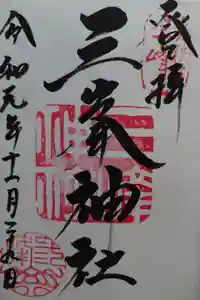 登拝
三峯神社
令和元年十一月二十九日